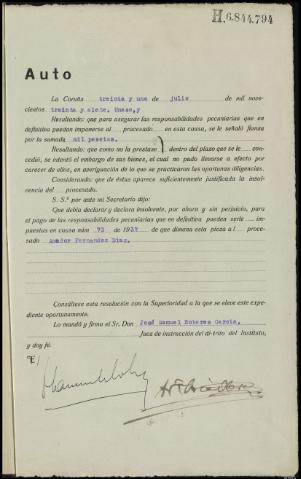 H.6.844.794
Auto
La Coruña treinta y uno de julio de mil nove-
cientos treinta y siete. Unase, y
Resultando: que para asegurar las responsabilidades pecuniarias que en
definitiva puedan imponerse al procesado en esta causa, se le señaló fianza
por la suma de mil pesetas.
Resultando: que como no la prestase dentro del plazo que se le con-
cedió, se intentó el embargo de sus bienes, el cual no pudo llevarse a efecto por
carecer de ellos, en averiguación de lo que se practicaron las oportunas diligencias.
Considerando: que de éstas aparece suficientemente justificada la insol-
vencia del procesado.
S. S.ª por ante mi Secretario dijo:
Que debía declarar y declara insolvente, por ahora y sin perjuicio, para
el pago de las responsabilidades pecuniarias que en definitiva puedan serle im-
puestas en causa núm 72 de 1937 de que dimana esta pieza al proce-
sado Amador Fernandez Diaz.
Consúltese esta resolución con la Superioridad a la que se eleve este expe-
diente oportunamente.
Lo mandó y firma el Sr. Don José Manuel Roberes García,
Juez de instrucción del distrito del Instituto,
y doy fé.